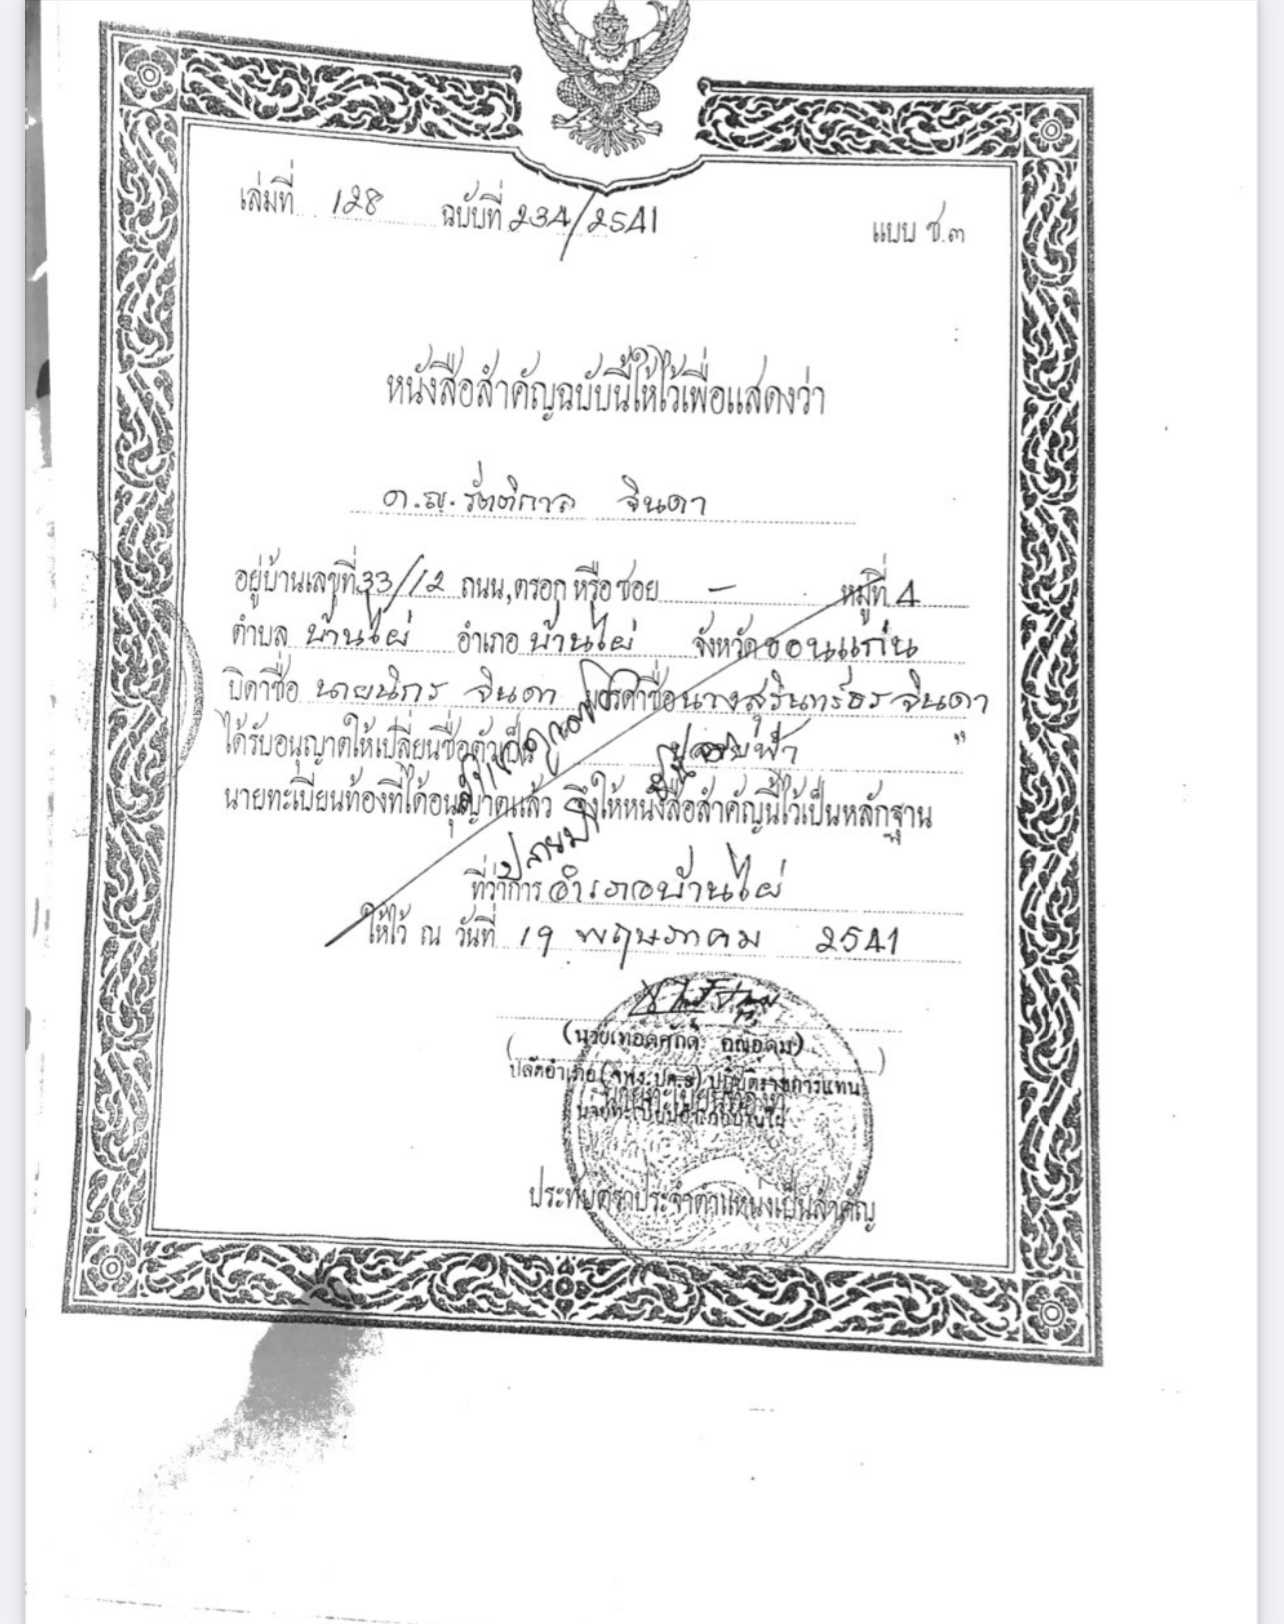 เล่มที่ 128 ฉบับที่ 234/2541
แบบ ช.๓
หนังสือสำคัญฉบับนี้ให้ไว้เพื่อแสดงว่า
ด.ญ.รัตติกาล จินดา
อยู่บ้านเลขที่ 33/12 ถนน,ตรอก หรือ ซอย - หมู่ที่ 4
ตำบล บ้านไผ่ อำเภอ บ้านไผ่ จังหวัด ขอนแก่น
บิดาชื่อ นายนิกร จินดา มารดาชื่อ นางสุรินทร์ธร จินดา
ได้รับอนุญาตให้เปลี่ยนชื่อตัวเป็น "
นายทะเบียนท้องที่ได้อนุญาตแล้ว จึงให้หนังสือสำคัญนี้ไว้เป็นหลักฐาน
ที่ว่าการ อำเภอบ้านไผ่
ให้ไว้ ณ วันที่ 19 พฤษภาคม 2541
(นายเทอดศักดิ์ คุณอุดม)
ปลัดอำเภอ (จพง.ปค.8) ปฏิบัติราชการแทน
นายทะเบียนท้องที่
นายทะเบียนอำเภอบ้านไผ่
ประทับตราประจำตำแหน่งเป็นสำคัญ